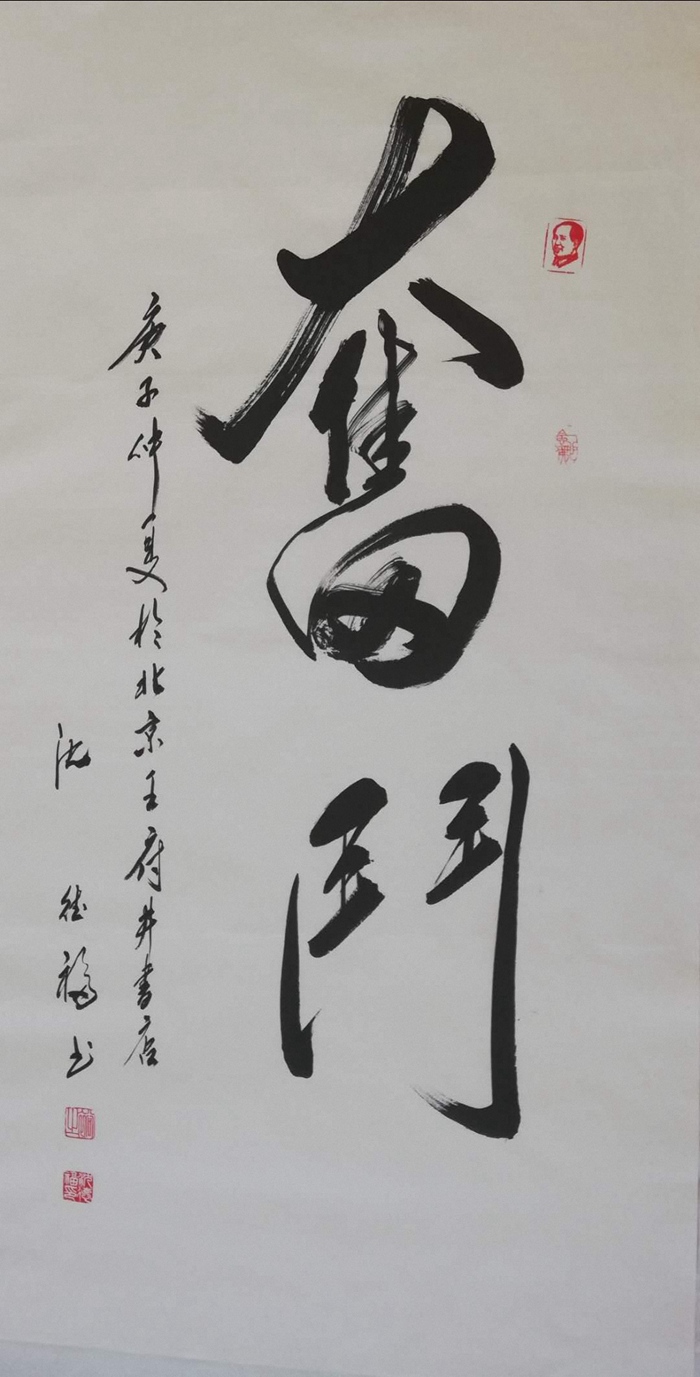 奮鬥
庚子仲夏於北京王府井書店
沈德福书